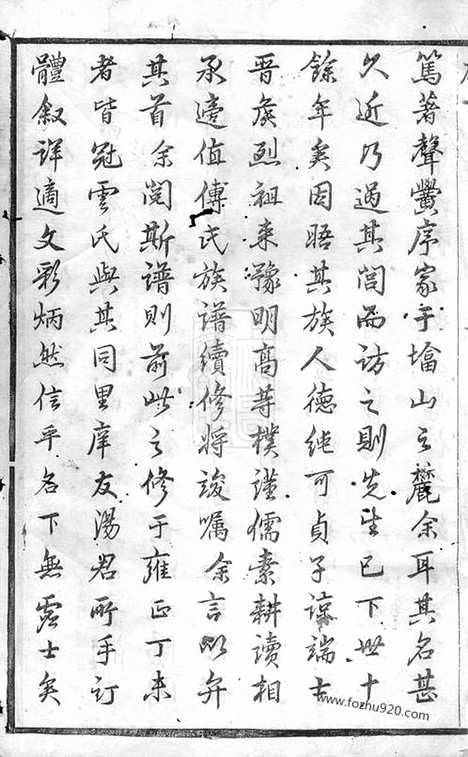 篤著聲黌序家于墖山之麓余耳其名甚
久近乃過其閭而訪之則先生已下世十
餘年矣因晤其族人德純可貞子諒端士
晋矦烈祖来豫明高等樸謹儒素耕讀相
承適值傅氏族譜續修將竣嘱余言以弁
其首余閲斯譜則前此之修于雍正丁未
者皆冠雲氏與其同里庠友湯君所手訂
體叙詳適文彩炳然信乎名下無虚士矣
www.fozhu920.com